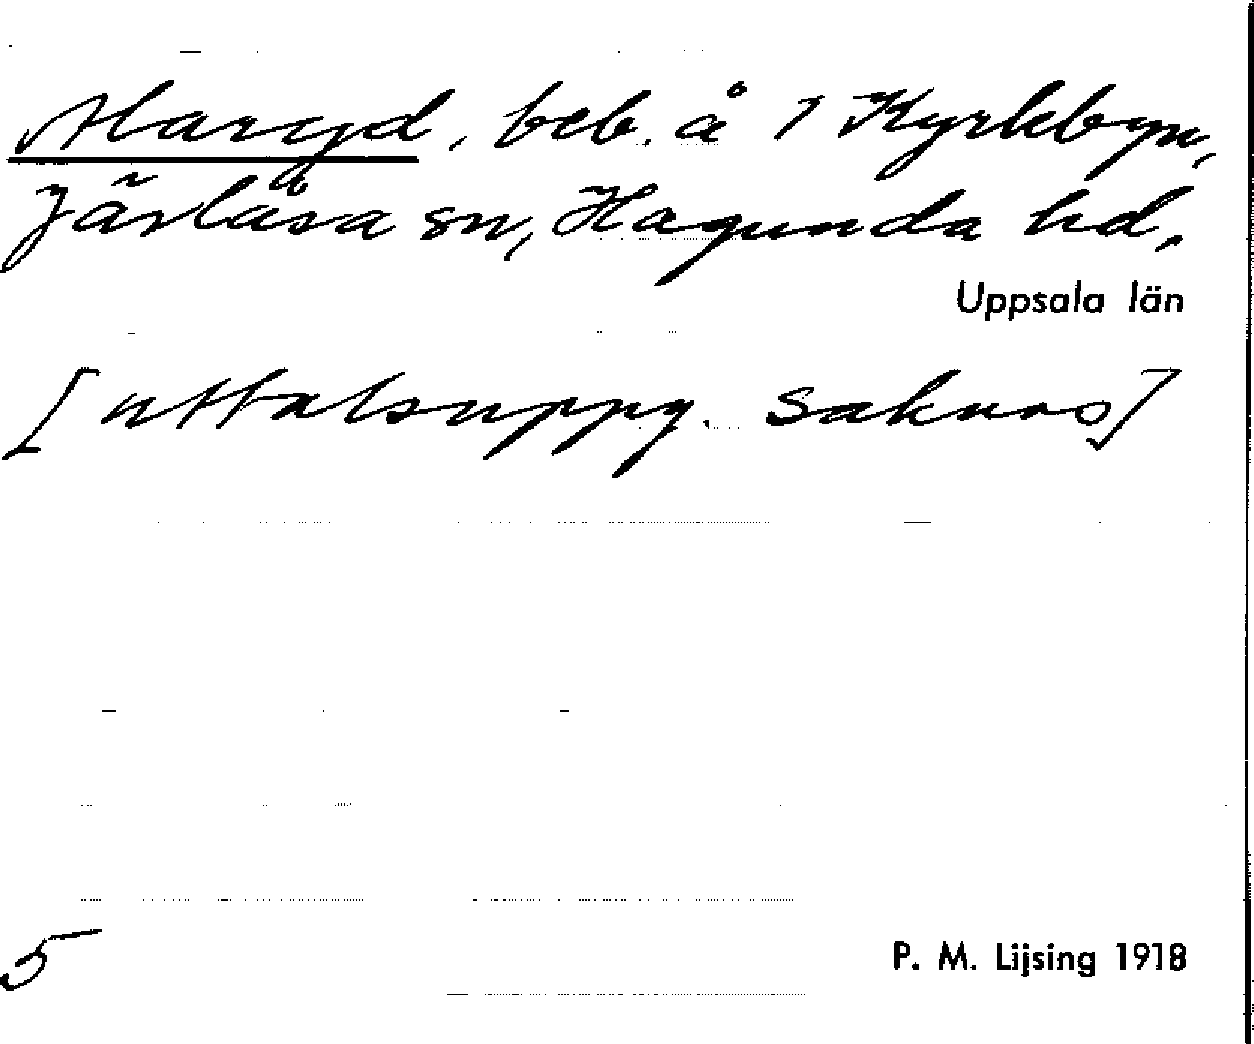 beb. å 1 Kyrkbyn,
Järlåsa sn, Hagunda hd,
Uppsala län
[uttalsuppg. saknas]
5
P. M. Lijsing 1918